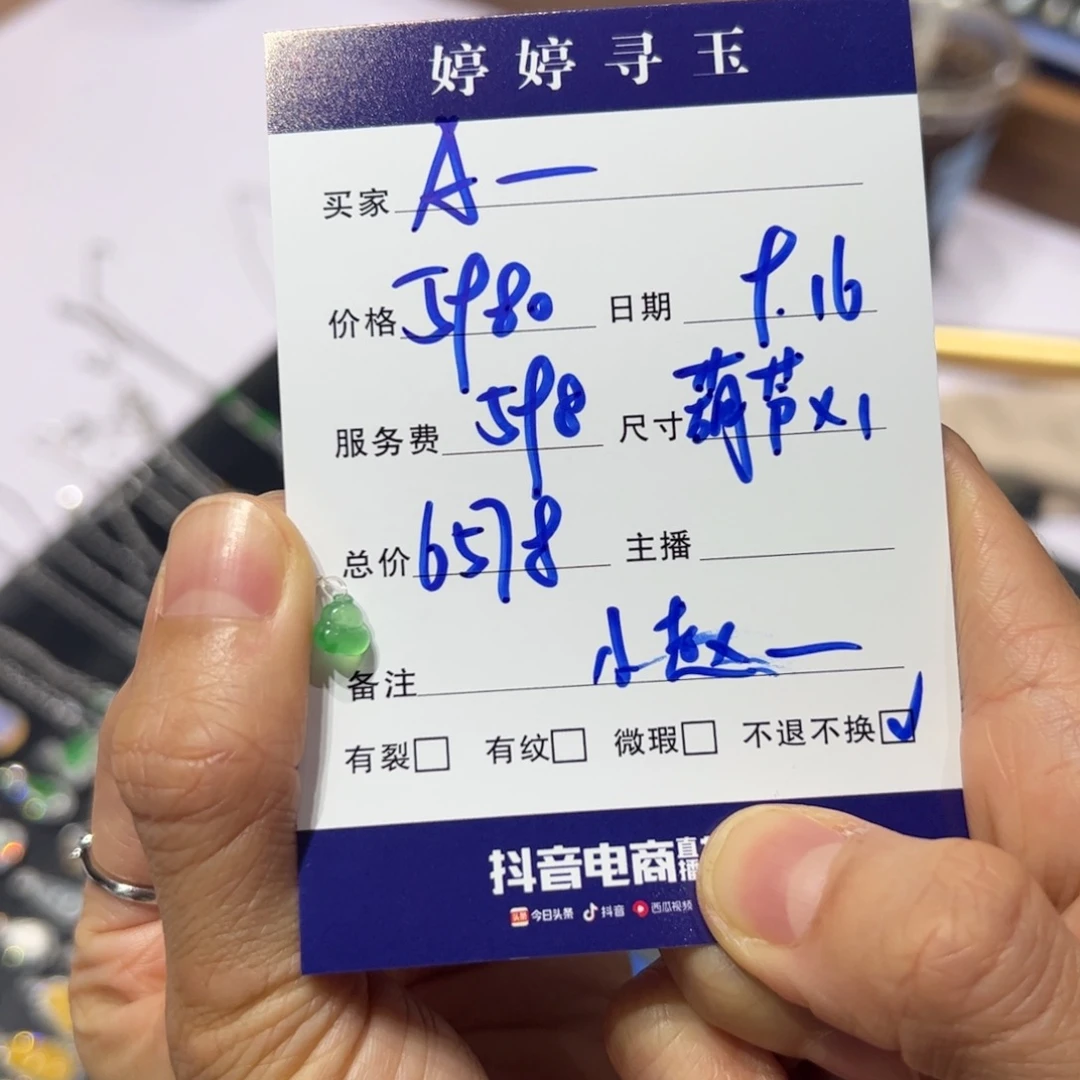 婷婷寻玉
买家 A一
价格 5980 日期 9.16
服务费 598 尺寸 葫芦x1
总价 6578 主播
备注 小赵一
有裂 有纹 微瑕 不退不换 ✓
抖音电商 直播
今日头条 抖音 西瓜视频